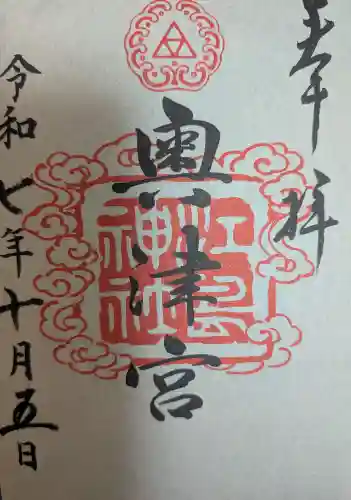 奉拝
奥津宮
江島神社
令和七年十月五日